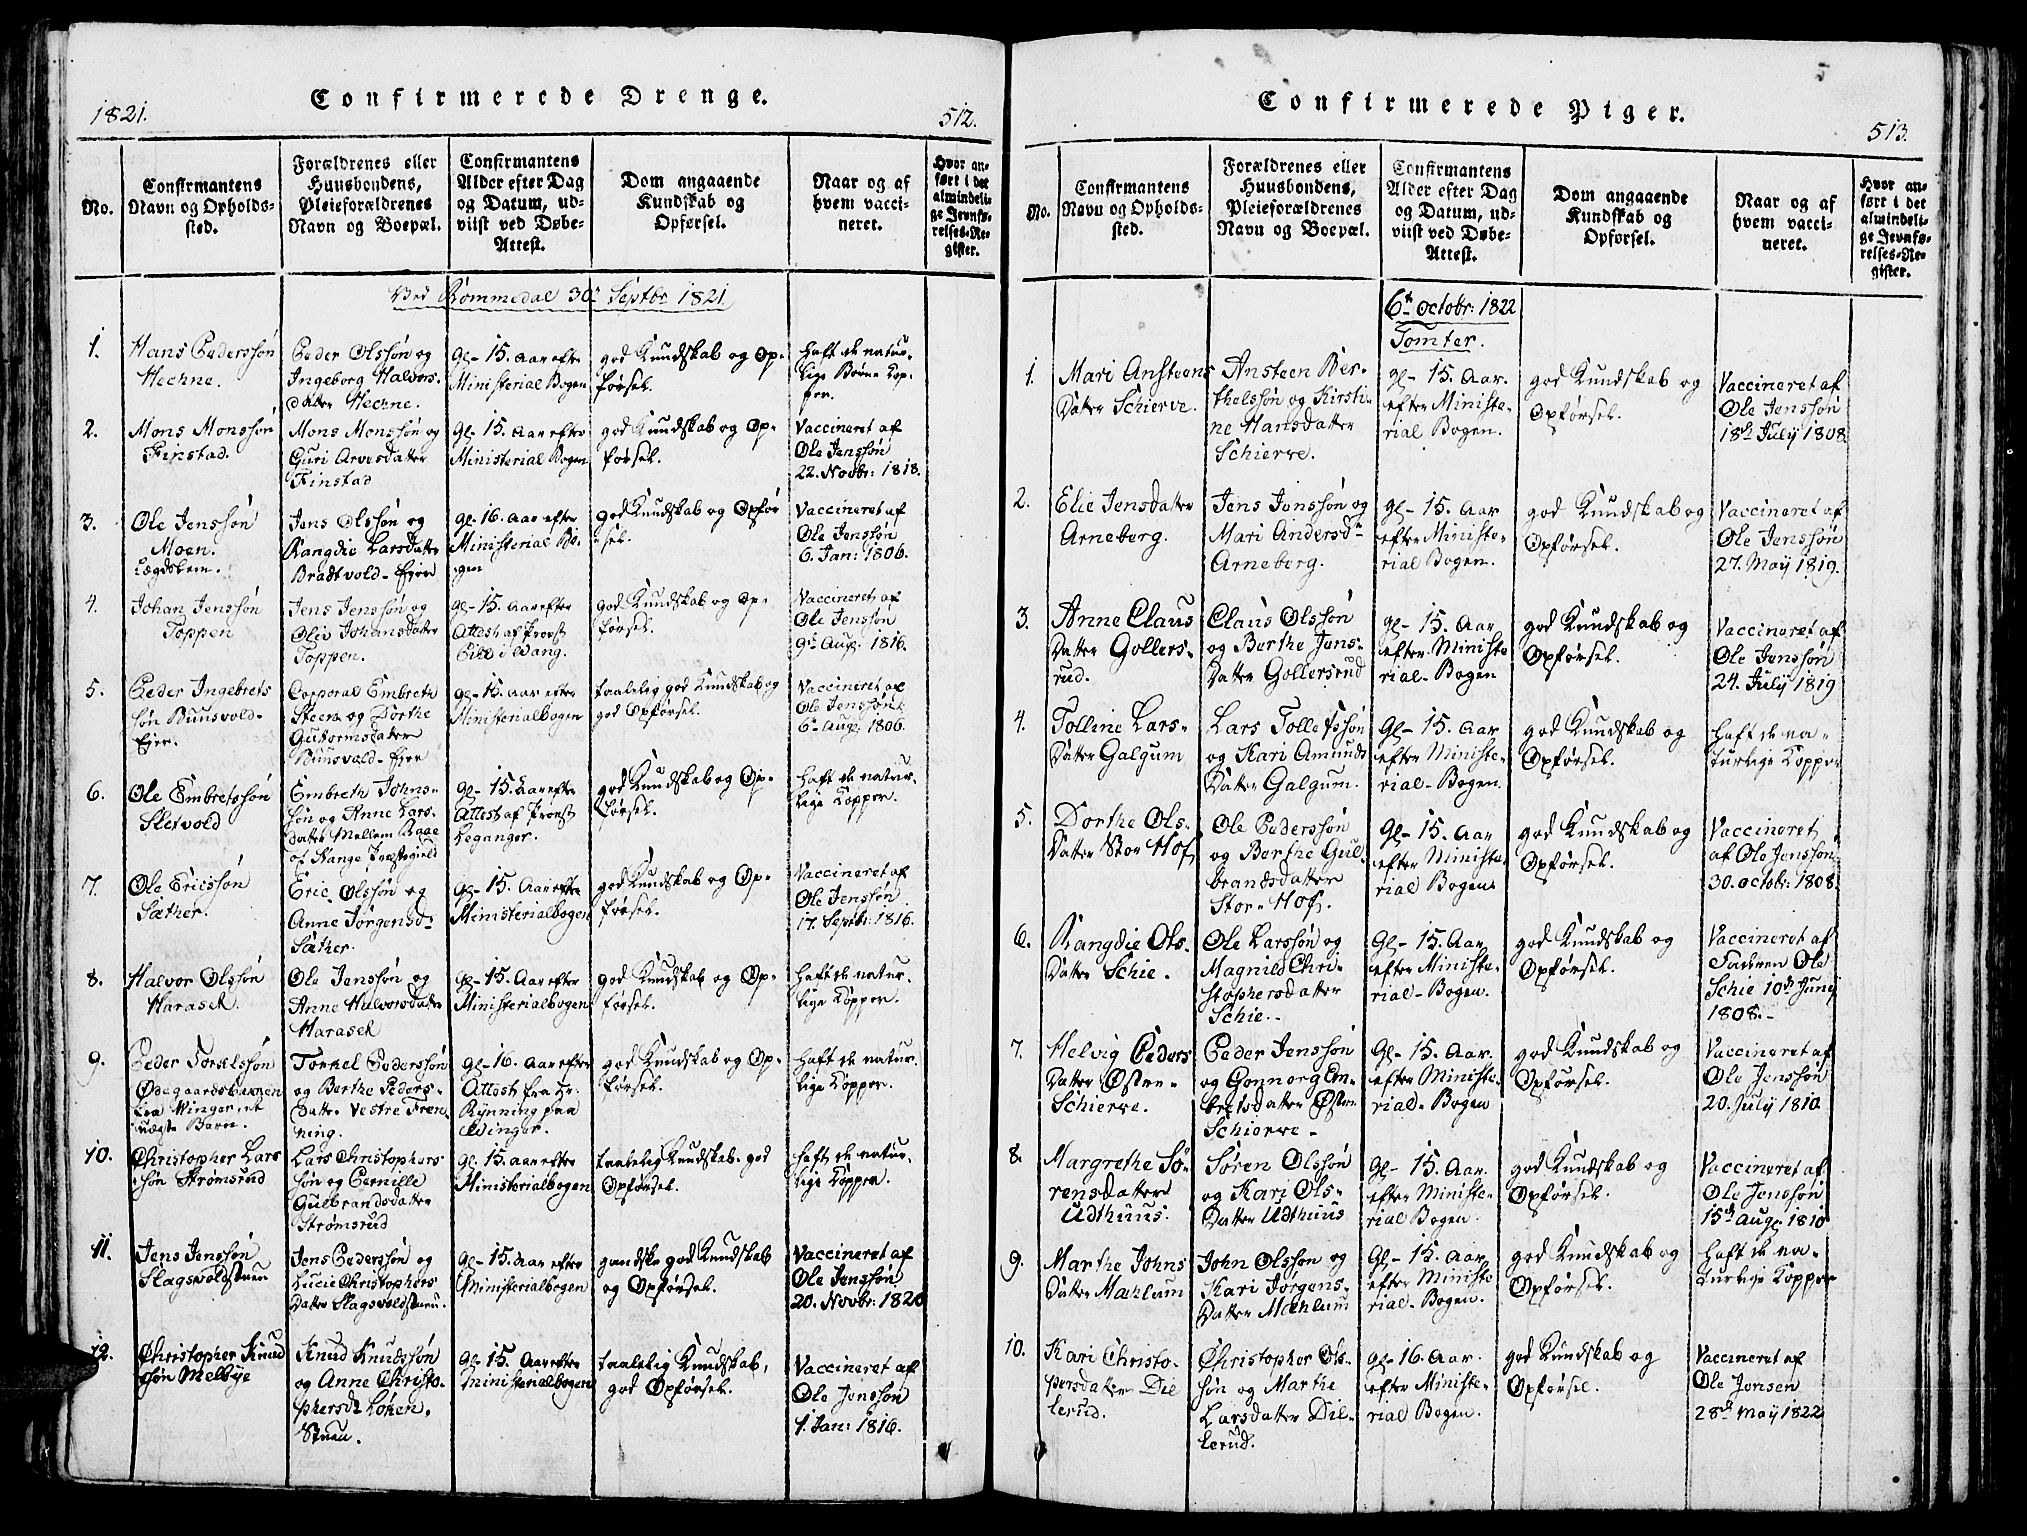 1821.
Confirmerede Drenge.
512.
No.
Confirmantens
Navn og Opholds-
sted.
Forældrenes eller
Huusbondens,
Pleieforældrenes
Navn og Boepæl.
Confirmantens
Alder efter Dag
og Datum, ud-
viist ved Døbe-
Attest.
Dom angaaende
Kundskab og
Opførsel.
Naar og af
hvem vacci-
neret.
Hvor an-
ført i det
almindeli-
ge Jevnfø-
relses-Re-
gister.
Ved Rommedal 30te Septbr 1821
1.
Hans Pederssøn
Hechne.
Peder Olssøn og
Ingeborg Halvors-
datter Hechne.
Gl- 15. Aar efter
Ministerial Bogen
god Kundskab og Op-
førsel.
haft de natur-
lige Børne Kop-
per.
2.
Mons Monssøn
Finstad.
Mons Monssøn og
Guri Arvesdatter
Finstad
Gl- 15. Aar efter
Ministerial Bogen
god Kundskab og Op-
førsel.
Vaccineret af
Ole Jenssøn
22. Novbr: 1818.
3.
Ole Jenssøn
Moen.
Lægdslem.
Jens Olssøn og
Rangdie Larsdatter
Bradtvold-Ejer
Gl- 16. Aar efter
Ministerial Bo-
gen
god Kundskab og Opfør
sel.
Vaccineret af
Ole Jenssøn
6. Jan: 1806.
4.
Johan Jenssøn
Toppen
Jens Jenssøn og
Olie Johansdatter
Toppen.
Gl- 15. Aar efter
Attest af Provst
Pihl i Wang.
god Kundskab og Op-
førsel.
Vaccineret af
Ole Jenssøn
9de Aug. 1816.
5.
Peder Ingebrets
søn Buusvold-
Ejer.
Corporal Embreth
Steen og Dorthe
Gutormsdatter
Buusvald-Ejer
Gl- 15. Aar efter
Ministerialbogen
taalelig god Kundskab og
god Opførsel.
Vaccineret af
Ole Jenssøn
6te Aug. 1806.
6.
Ole Embretssøn
Sletvold
Embreth Johns-
søn og Anne Lars-
datter Mellem Raae
af Stange Præstegield
Gl- 15. Aar efter
Attest af Provst
Leganger.
god Kundskab og Op-
førsel.
haft de natur-
lige Kopper.
7.
Ole Ericssøn
Sæther.
Eric Olssøn og
Anne Jørgensd-
Sæther.
Gl- 15. Aar efter
Ministerialbogen
god Kundskab og Op-
førsel.
Vaccineret af
Ole Jenssøn
17. Septbr: 1816.
8.
Halvor Olssøn
Harasek.
Ole Jenssøn og
Anne Halvorsdatter
Harasek
Gl- 15. Aar efter
Ministerialbogen
god Kundskab og Op-
førsel.
haft de natur-
lige Kopper.
9.
Peder Torkelssøn
Ødegaardsbakken
fra Winger, et
uægte Barn.
Torkel Pederssøn
og Berthe Peders-
datter Vestre Fren
ning.
Gl- 16. Aar efter
Attest fra Hr.
Rynning paa
Winger.
god Kundskab og Op-
førsel.
haft de natur-
lige Kopper.
10.
Christopher Lars
søn Strømsrud
Lars Christophers
søn og Pernille
Gulbrandsdatter
Strømsrud
Gl- 15. Aar efter
Ministerialbogen
taalelig Kundskab. god
Opførsel.
haft de natur-
lige Kopper.
11.
Jens Jenssøn
Slagsvoldstuen
Jens Pederssøn og
Lucie Christophers
Datter Slagsvoldstuen.
Gl- 15. Aar efter
Ministerialbogen
gandske god Kundskab
og Opførsel.
Vaccineret af
Ole Jenssøn
20. Novbr: 1820
12.
Christopher Knud
søn Melbye
Knud Knudssøn
og Anne Christo-
phersdr Løken.
Stuen.
Gl- 15. Aar efter
Ministerialbogen
taalelig Kundskab,
god Opførsel.
Vaccineret af
Ole Jenssøn
1. Jan: 1816.
Confirmerede Piger.
513.
No.
Confirmantens
Navn og Opholds-
sted.
Forældrenes eller
Huusbondens,
Pleieforældrenes
Navn og Boepæl.
Confirmantens
Alder efter Dag
og Datum, ud-
viist ved Døbe-
Attest.
Dom angaaende
Kundskab og
Opførsel.
Naar og af
hvem vacci-
neret.
Hvor an-
ført i det
almindeli-
ge Jevnfø-
relses-Re-
gister.
6te octobr: 1822
Tomter.
1.
Mari Ansteens
Datter Schierve.
Ansteen Ber-
thelssøn og Kirsti-
ne Hansdatter
Schierve.
gl- 15. Aar.
efter Ministe-
rial Bogen.
god Kundskab og
Opførsel.
Vaccineret af
Ole Jenssøn
18de July 1808
2.
Elie Jensdatter
Arneberg.
Jens Jenssøn og
Mari Andersdr
Arneberg.
gl- 15. Aar
efter Ministe-
rial Bogen.
god Kundskab og
Opførsel.
Vaccineret af
Ole Jenssøn
27. May 1819.
3.
Anne Claus
Datter Gollers-
rud.
Claus Olssøn
og Berthe Jens-
Datter Gollersrud
gl- 15. Aar
efter Ministe
rial-Bogen
god Kundskab og
Opførsel.
Vaccineret af
Ole Jenssøn
24. July 1819
4.
Tolline Lars-
Datter Galgum
Lars Tollefssøn
og Kari Amunds
Datter Galgum.
Gl- 15. Aar
efter Ministe-
rial-Bogen.
god Kundskab og
Opførsel.
haft de na-
turlige Kopper
5.
Dorthe Ols-
Datter Stor Hof
Ole Pederssøn
og Berthe Gul-
brandsdatter
Stor-Hof.
Gl- 15. Aar
efter Ministe-
rial Bogen
god Kundskab og
Opførsel.
Vaccineret
af Ole Jenssøn
30. octobr: 1808.
6.
Rangdie Ols-
Datter Schie.
Ole Larssøn og
Magnild Chri-
stophersdatter
Schie.-
Gl- 15. Aar
efter Ministe-
rial-Bogen.
god Kundskab og
Opførsel.
Vaccineret af
Faderen Ole
Schie 10de Juny
1808.-
7.
Helvig Peders
Datter Østre-
Schierve.
Peder Jenssøn
og Gonnorg Em-
bretsdatter Østre
Schierve-
Gl- 15. Aar.
efter Ministe-
rial-Bogen
god Kundskab og
Opførsel.
Vaccineret af
Ole Jenssøn
20. July 1810
8.
Margrethe Sø-
rensdatter
Udthuus.
Søren Olssøn
og Kari Ols-
Datter Udthuus
Gl- 15. Aar.
efter Ministe-
rial Bogen.
god Kundskab og
Opførsel.
Vaccineret af
Ole Jenssøn
15de Aug. 1810
9.
Marthe Johns
Datter Mæhlum
John Olssøn og
Kari Jørgens-
Datter Mæhlum
Gl- 15. Aar.
efter Ministe
rial-Bogen.
god Kundskab og
Opførsel.
haft de na-
turlige Kopper
10.
Kari Christo-
persdatter Dil
lerud.
Christopher Ols-
søn og Marthe
Larsdatter Dil-
lerud.
Gl- 16. Aar.
efter Ministe-
rial Bogen.
god Kundskab og
Opførsel.
Vaccineret af
Ole Jensen
28de May 1822